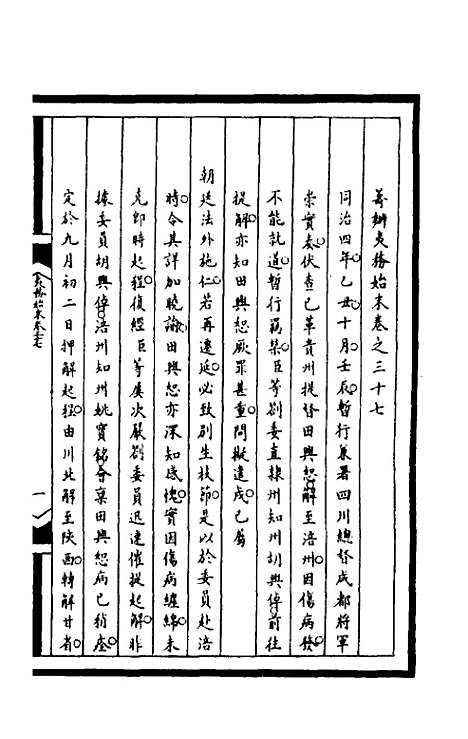 籌辦夷務始末卷之三十七
同治四年乙丑十月壬辰暫行兼署四川總督成都將軍
崇實奏伏查已革貴州提督田興恕解至涪州因傷病發
不能就道暫行羈禁臣等劄委直隸州知州胡興倬前往
提解亦知田興恕厥罪甚重問擬遣戍已屬
朝廷法外施仁若再遷延必致別生枝節是以於委員赴涪
時令其詳加曉諭田興恕亦深知感愧實因傷病纏綿未
克即時起程復經臣等屢次嚴劄委員迅速催提起解非
據委員胡興倬涪州知州姚寶銘會稟田興恕病已稍痊
定於九月初二日押解起程由川北解至陝西轉解甘省
夷務始末卷三七
一